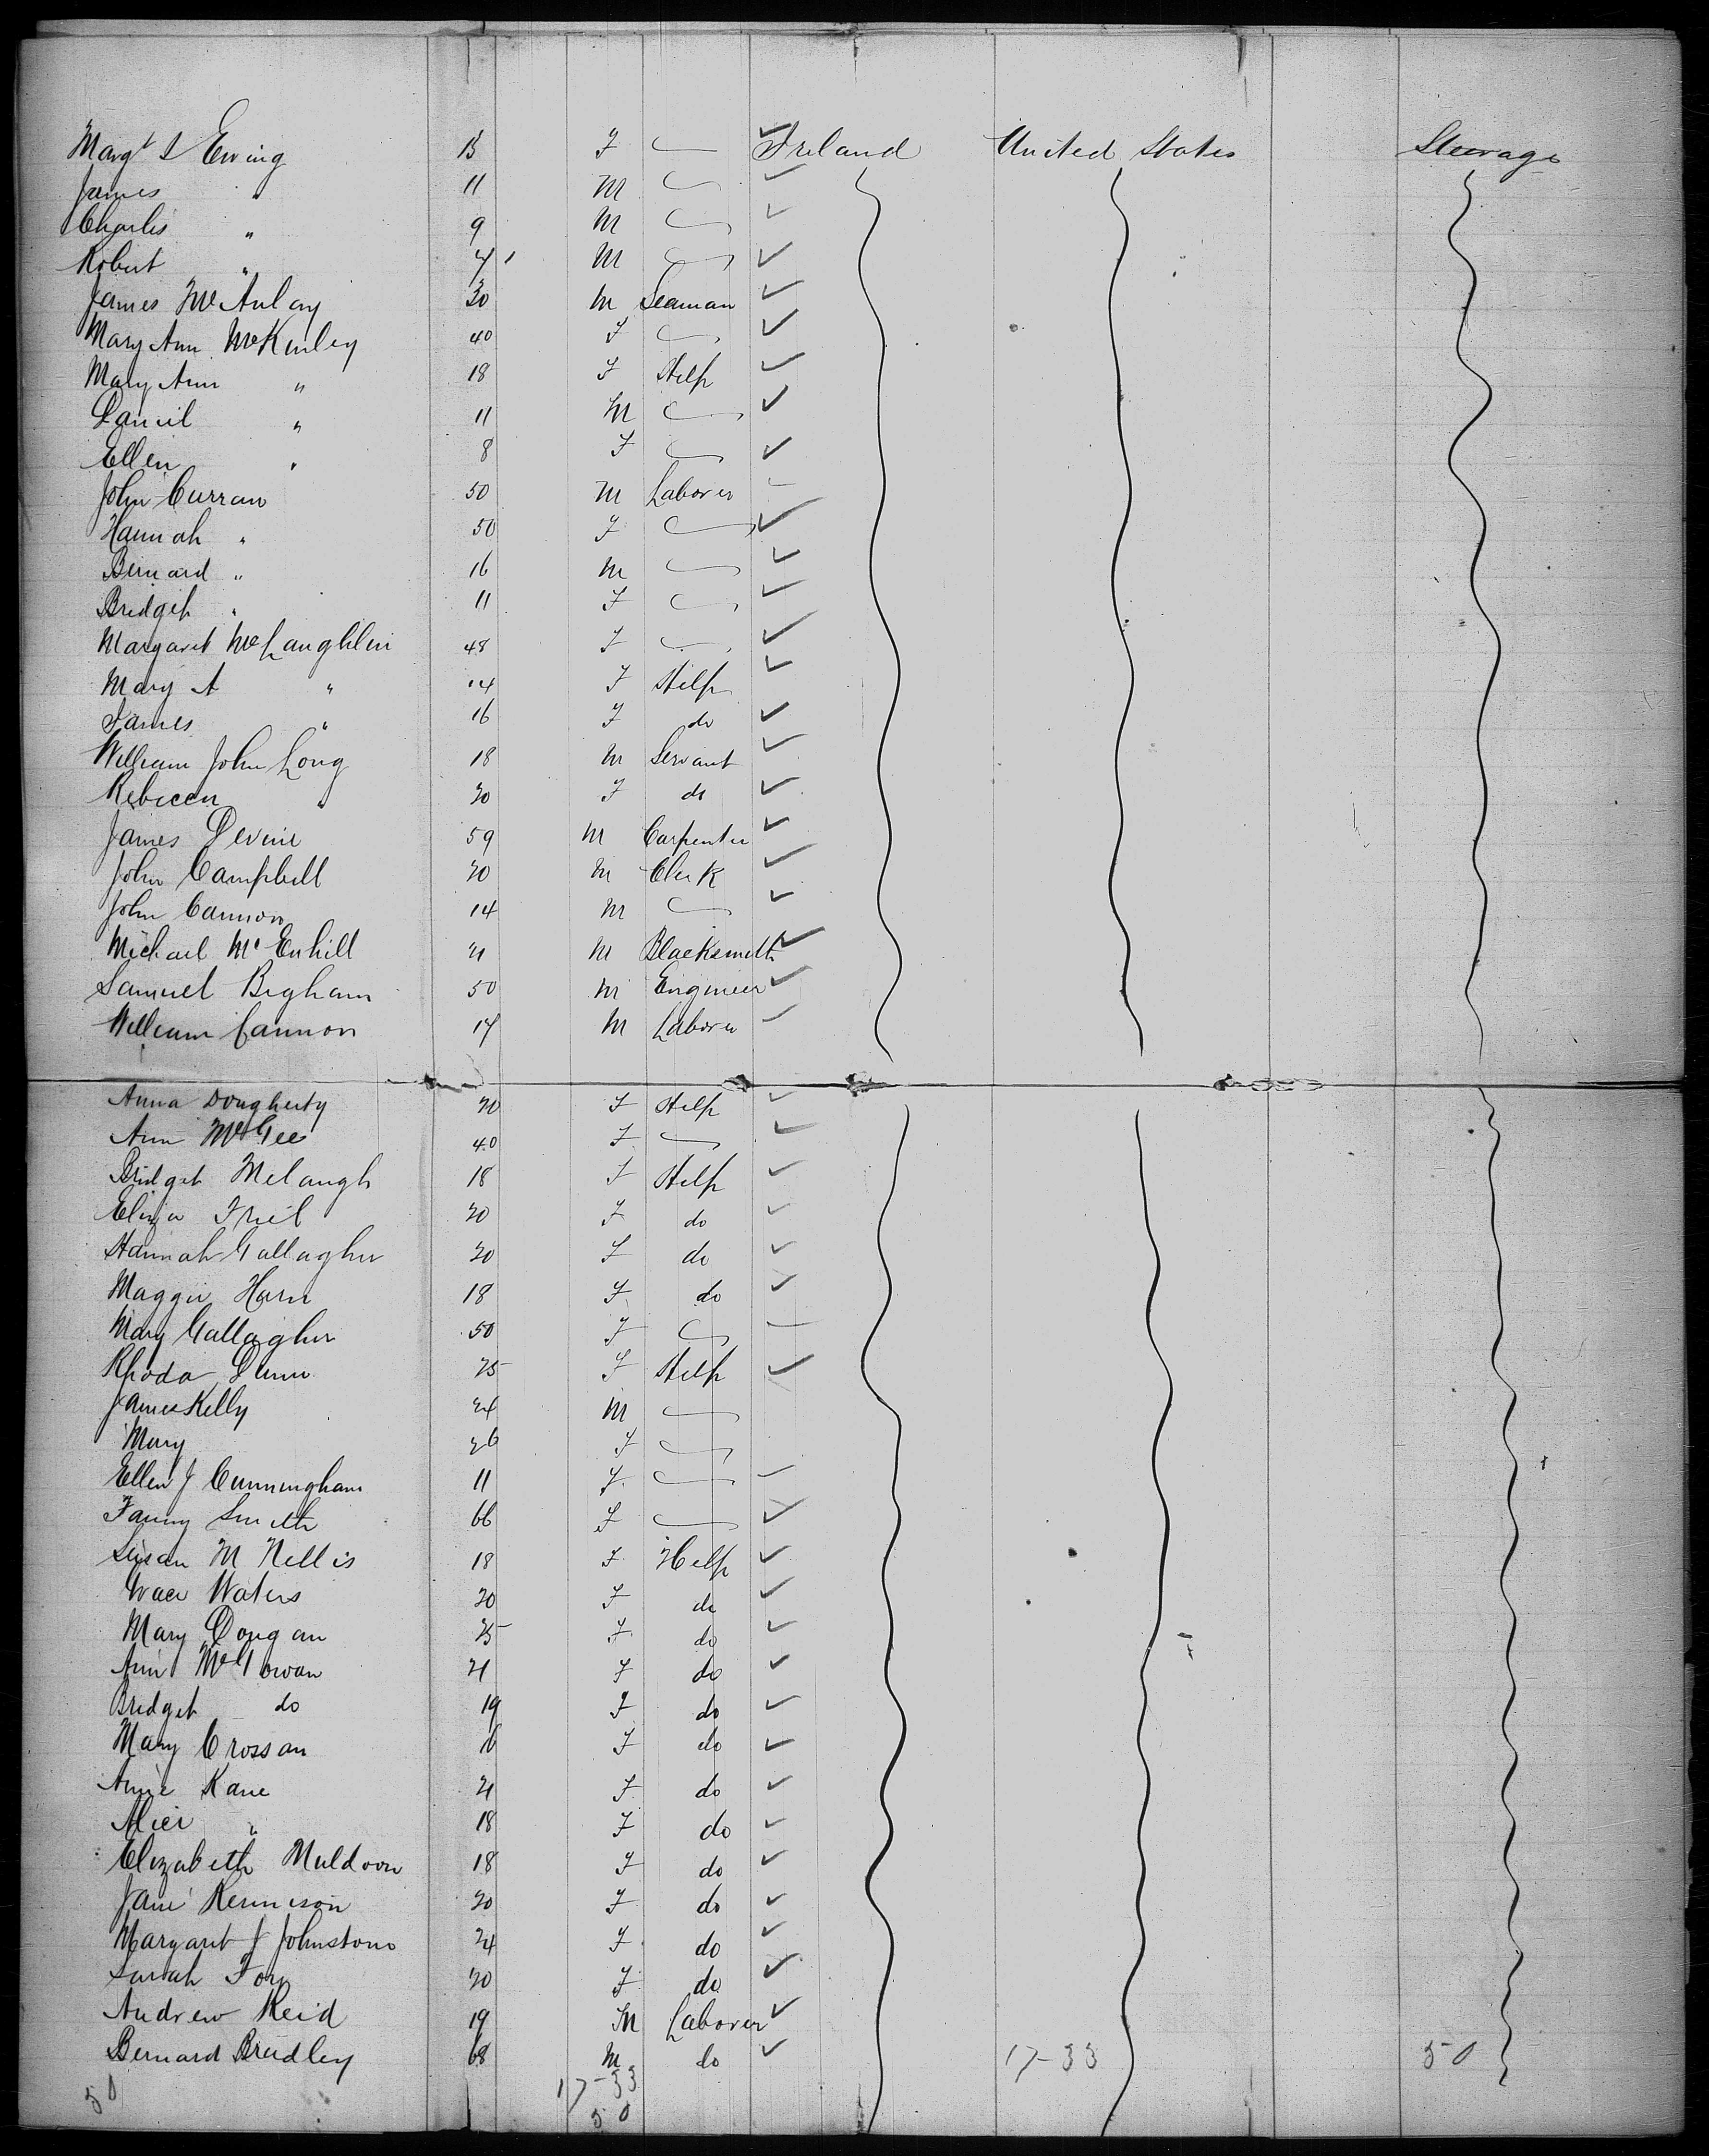 Margt S Ewing 13 F Ireland United States Steerage
James " 11 M
Charles " 9 M
Robert " 4 M
James McAulay 30 M Seaman
Mary Ann McKinley 40 F
Mary Ann " 18 F Help
Daniel " 11 M
Ellen " 8 F
John Curran 50 M Laborer
Hannah " 50 F
Bernard " 16 M
Bridget " 11 F
Margaret McLaughlin 48 F
Mary A " 14 F Help
James " 16 F do
William John Long 18 M Servant
Rebecca " 20 F do
James Devine 59 M Carpenter
John Campbell 20 M Clerk
John Cannon 14 M
Michael McEnhill 21 M Blacksmith
Samuel Bigham 50 M Engineer
William Cannon 17 M Laborer
Anna Dougherty 20 F Help
Ann McGee 40 F
Bridget Melaugh 18 F Help
Eliza Friel 20 F do
Hannah Gallagher 20 F do
Maggie Harn 18 F do
Mary Gallagher 50 F
Rhoda Dunn 25 F Help
James Kelly 24 M
Mary 26 F
Ellen J Cunningham 11 F
Fanny Smith 66 F
Susan M Nellis 18 F Help
Grace Waters 20 F do
Mary Dougan 25 F do
Ann McGowan 21 F do
Bridget do 19 F do
Mary Crossan 16 F do
Annie Kane 21 F do
Alice " 18 F do
Elizabeth Muldoon 18 F do
Jane Kennison 20 F do
Margaret J Johnstone 24 F do
Sarah Foy 20 F do
Andrew Reid 19 M Laborer
Bernard Bradley 68 M do 17-33 50
50 17-33
50